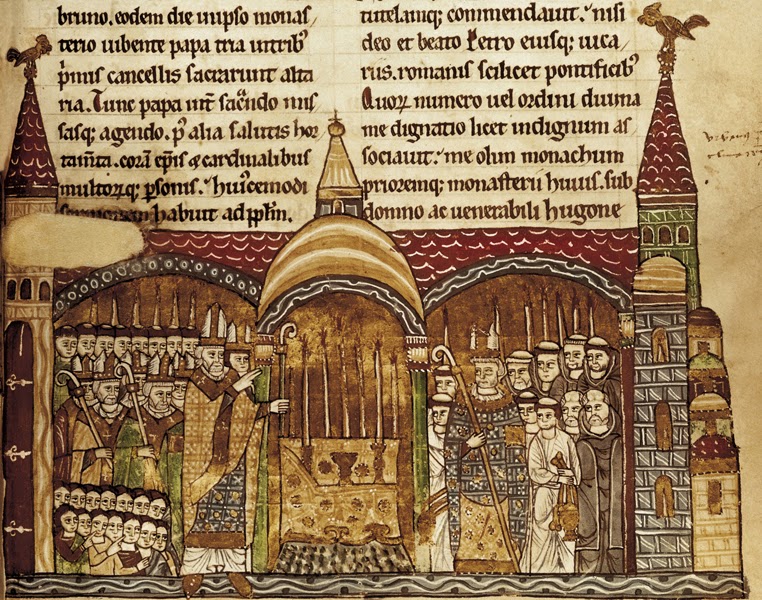 bruno. eodem die in ipso monas
terio iubente papa tria in tribꝰ
p̄mis cancellis sacrarunt alta
ria. Tunc papa int̄ sac̄ndo mis
sasq; agendo. p̄ alia salutis hor
tam̄ta. corā ep̄is & cardinalibus
multorq; ꝑsonis. huiꝰcemodi
sermonem habuit ad pp̄lm.
tutelamq; commendauit. nisi
deo et beato Petro eiusq; uica
riis. romanis scilicet pontificibꝰ
Quoꝝ numero uel ordini diuina
me dignatio licet indignum as
sociauit. me olim monachum
prioremq; monasterii huius. sub
domno ac uenerabili hugone